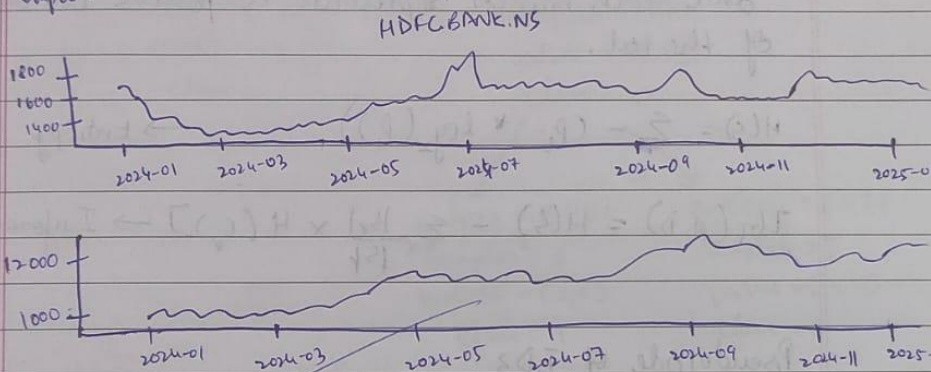 HDFCBANK.NS
1800
1600
1400
2024-01 2024-03 2024-05 2024-07 2024-09 2024-11 2025-0
12000
1000
2024-01 2024-03 2024-05 2024-07 2024-09 2024-11 2025-